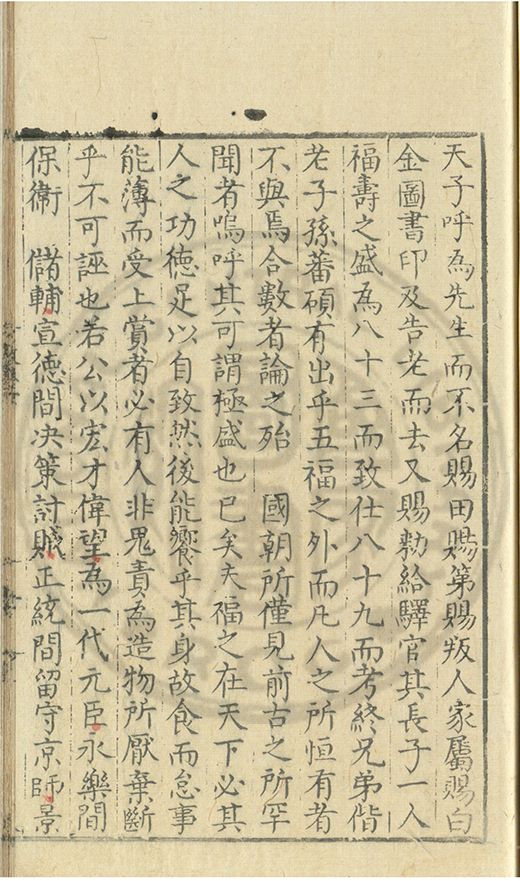 天子呼為先生而不名賜田賜第賜叛人家屬賜白
金圖書印及告老而去又賜勑給驛官其長子一人
福壽之盛為八十三而致仕八十九而考終兄弟偕
老子孫蕃碩有出乎五福之外而凡人之所恒有者
不與焉合數者論之殆　國朝所僅見前古之所罕
聞者嗚呼其可謂極盛也已矣夫福之在天下必其
人之功德足以自致然後能饗乎其身故食而怠事
能薄而受上賞者必有人非鬼責為造物所厭棄斷
乎不可誣也若公以宏才偉望為一代元臣永樂間
保衛　儲輔宣德間决策討賊正統間留守京師景